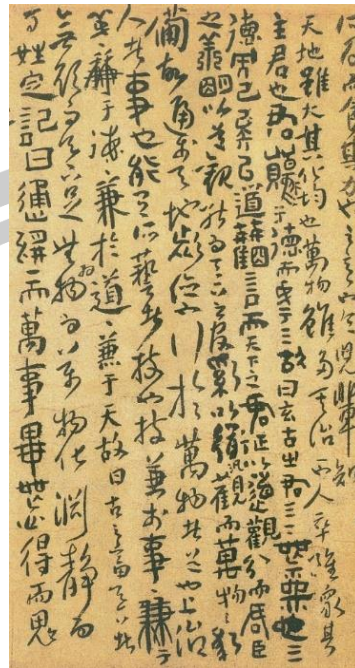 天地雖大其化均也萬物雖多其治一也人卒雖眾其
主君也君原于德而成于天故曰玄古之君天下無為也天
德而已矣以道觀言而天下之君正以道觀分而君臣
之義明以道觀能而天下之官治以道汎觀而萬物之應
備故通於天地者德也行於萬物者道也上治
人者事也能有所藝者技也技兼於事事兼于
義義兼于德德兼於道道兼于天故曰古之畜天下者
無欲而天下足無為而萬物化淵靜而
百姓定記曰通於一而萬事畢無心得而鬼